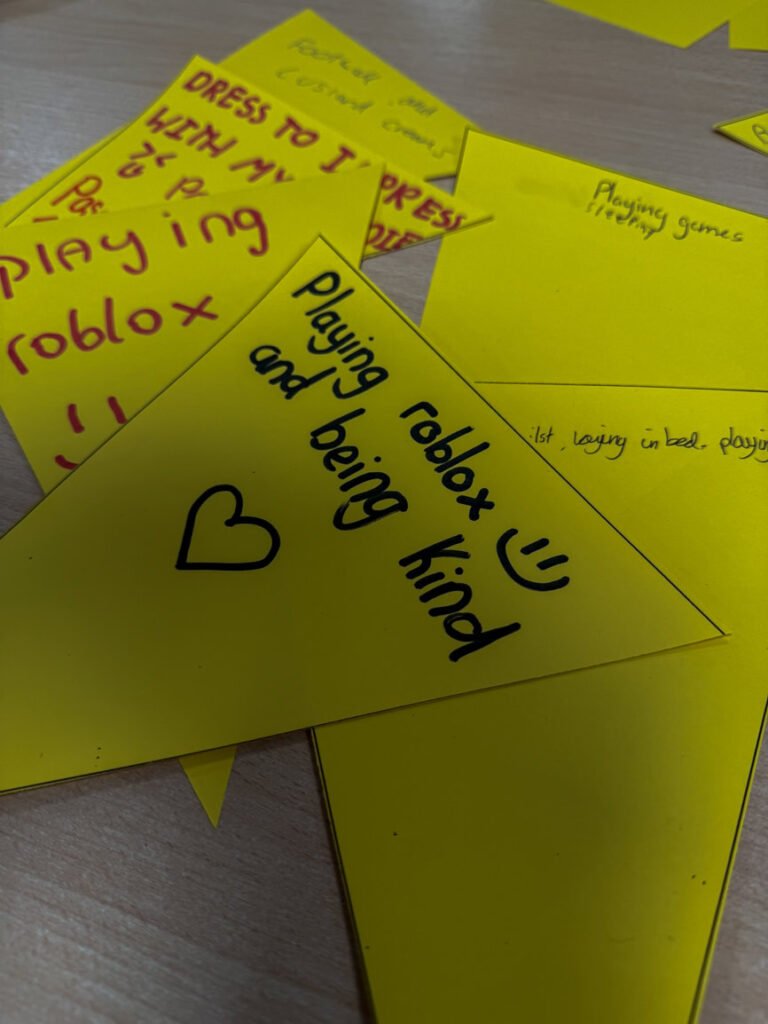 Football and
custard creams
DRESS TO I PRESS
WITH MY DIE
playing
roblox
Playing games
sleeping
laying in bed. playin
Playing roblox
and being kind